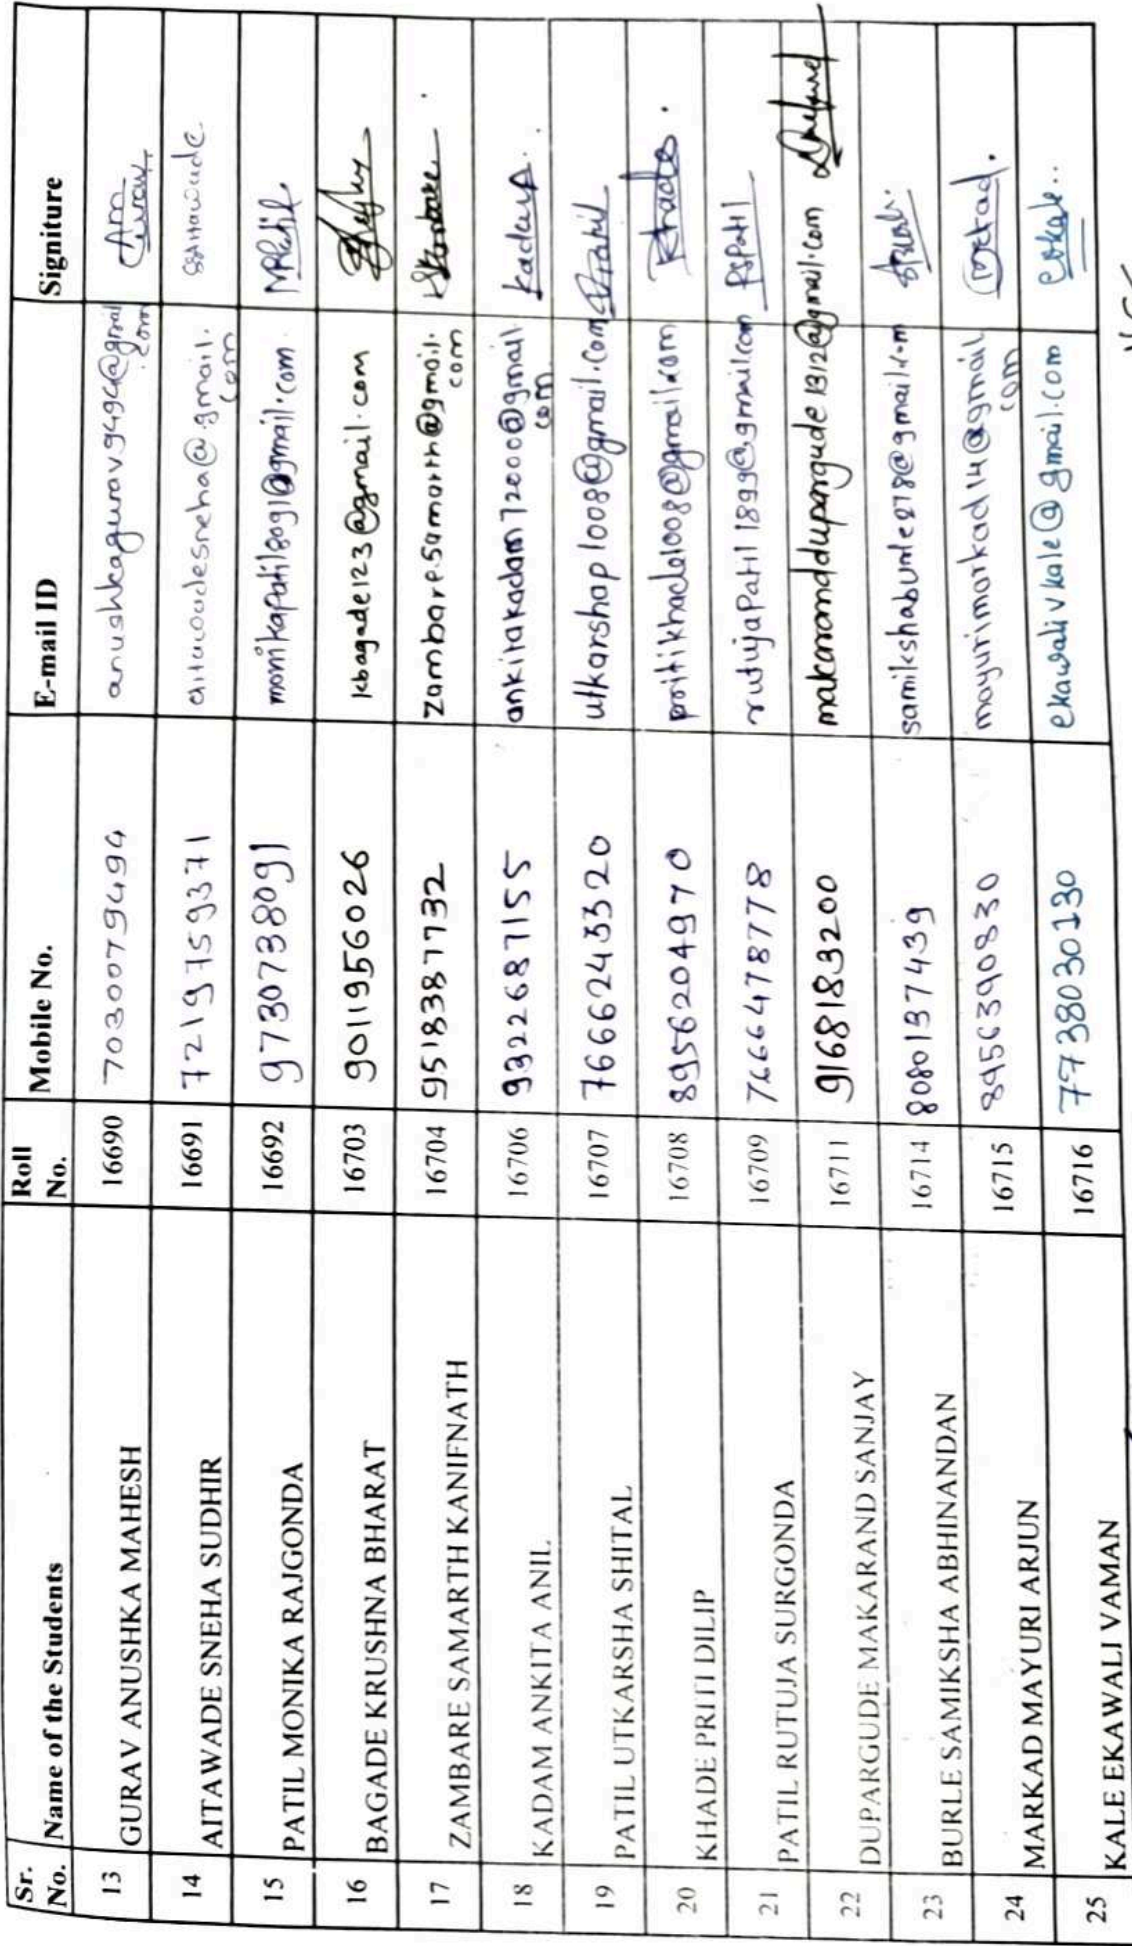 Sr. No. Name of the Students Roll No. Mobile No. E-mail ID Signiture
13 GURAV ANUSHKA MAHESH 16690 7030079494 anushkagurav9494@gmail.com
14 AITAWADE SNEHA SUDHIR 16691 7219759371 aitawadesneha@gmail.com SSAitawade
15 PATIL MONIKA RAJGONDA 16692 9730738091 monikapatil8091@gmail.com MRPatil
16 BAGADE KRUSHNA BHARAT 16703 9011956026 kbagade123@gmail.com
17 ZAMBARE SAMARTH KANIFNATH 16704 9518387732 zambare.samarth@gmail.com
18 KADAM ANKITA ANIL 16706 9322687155 ankitakadam72000@gmail.com
19 PATIL UTKARSHA SHITAL 16707 7666243320 utkarshap1008@gmail.com
20 KHADE PRITI DILIP 16708 8956204970 pritikhade1008@gmail.com Khade.
21 PATIL RUTUJA SURGONDA 16709 7666478778 rutujapatil1899@gmail.com RSPatil
22 DUPARGUDE MAKARAND SANJAY 16711 9168183200 makaranddupargude1312@gmail.com
23 BURLE SAMIKSHA ABHINANDAN 16714 8080137439 samikshaburle278@gmail.com
24 MARKAD MAYURI ARJUN 16715 8956390830 mayurimarkad14@gmail.com
25 KALE EKAWALI VAMAN 16716 7738030130 ekawalivkale@gmail.com